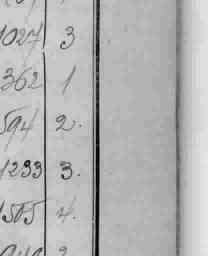 1027 3
362 1
594 2.
1233 3.
1505 4.